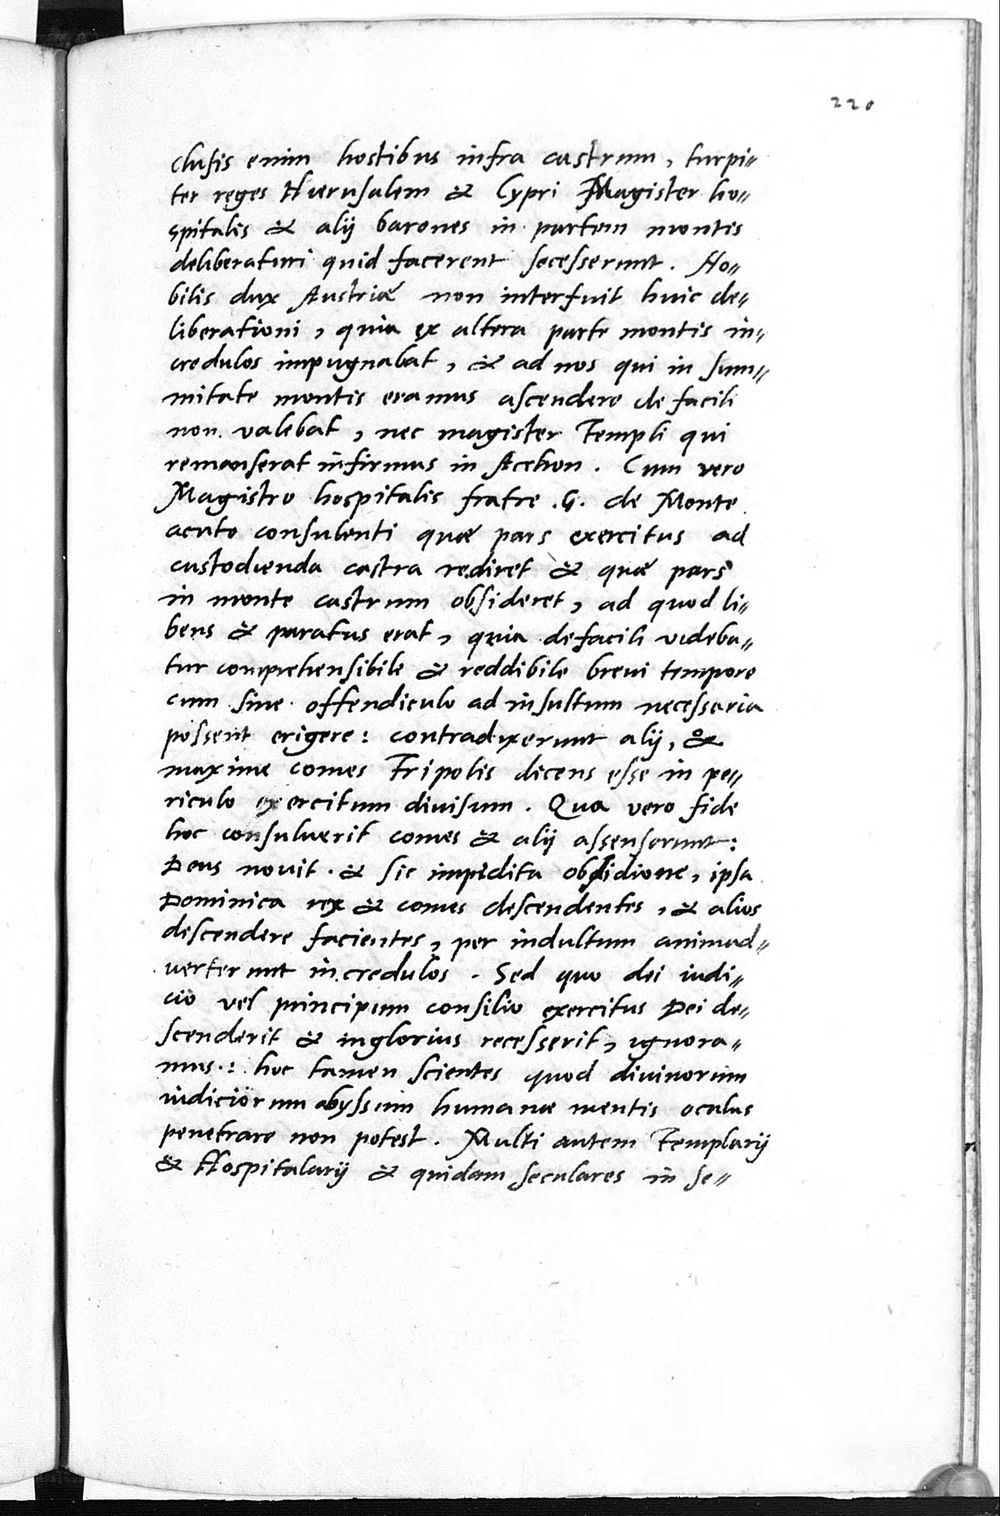 220
clusis enim hostibus infra castrum, turpi=
ter reges Hierusalem & Cypri Magister ho=
spitalis & alij barones in partem montis
deliberaturi quid facerent secesserunt. No=
bilis dux Austriæ non interfuit huic de=
liberationi, quia ex altera parte montis in=
credulos impugnabat, & ad nos qui in sum=
mitate montis eramus ascendere de facili
non valebat, nec magister Templi qui
remanserat infirmus in Acchon. Cum vero
Magistro hospitalis fratre .G. de Monte
acuto consulenti quæ pars exercitus ad
custodienda castra rediret & quæ pars
in monte castrum obsideret, ad quod li=
bens & paratus erat, quia defacili videba=
tur comprehensibile & reddibile brevi tempore
cum sine offendiculo ad insultum necessaria
possent erigere: contradixerunt alij, &
maxime comes Tripolis dicens esse in pe=
riculo exercitum divisum. Qua vero fide
hoc consuluerit comes & alij assenserunt:
Deus novit. & sic impedita obsidione, ipsa
Dominica rex & comes descendentes, & alios
descendere facientes, per indultum animad=
verterunt incredulos. Sed quo dei iudi=
cio vel principum consilio exercitus Dei de=
scenderit & inglorius recesserit, ignora=
mus: hoc tamen scientes quod divinorum
iudiciorum abyssum humanæ mentis oculus
penetrare non potest. Multi autem Templarij
& Hospitalarij & quidam seculares in se=